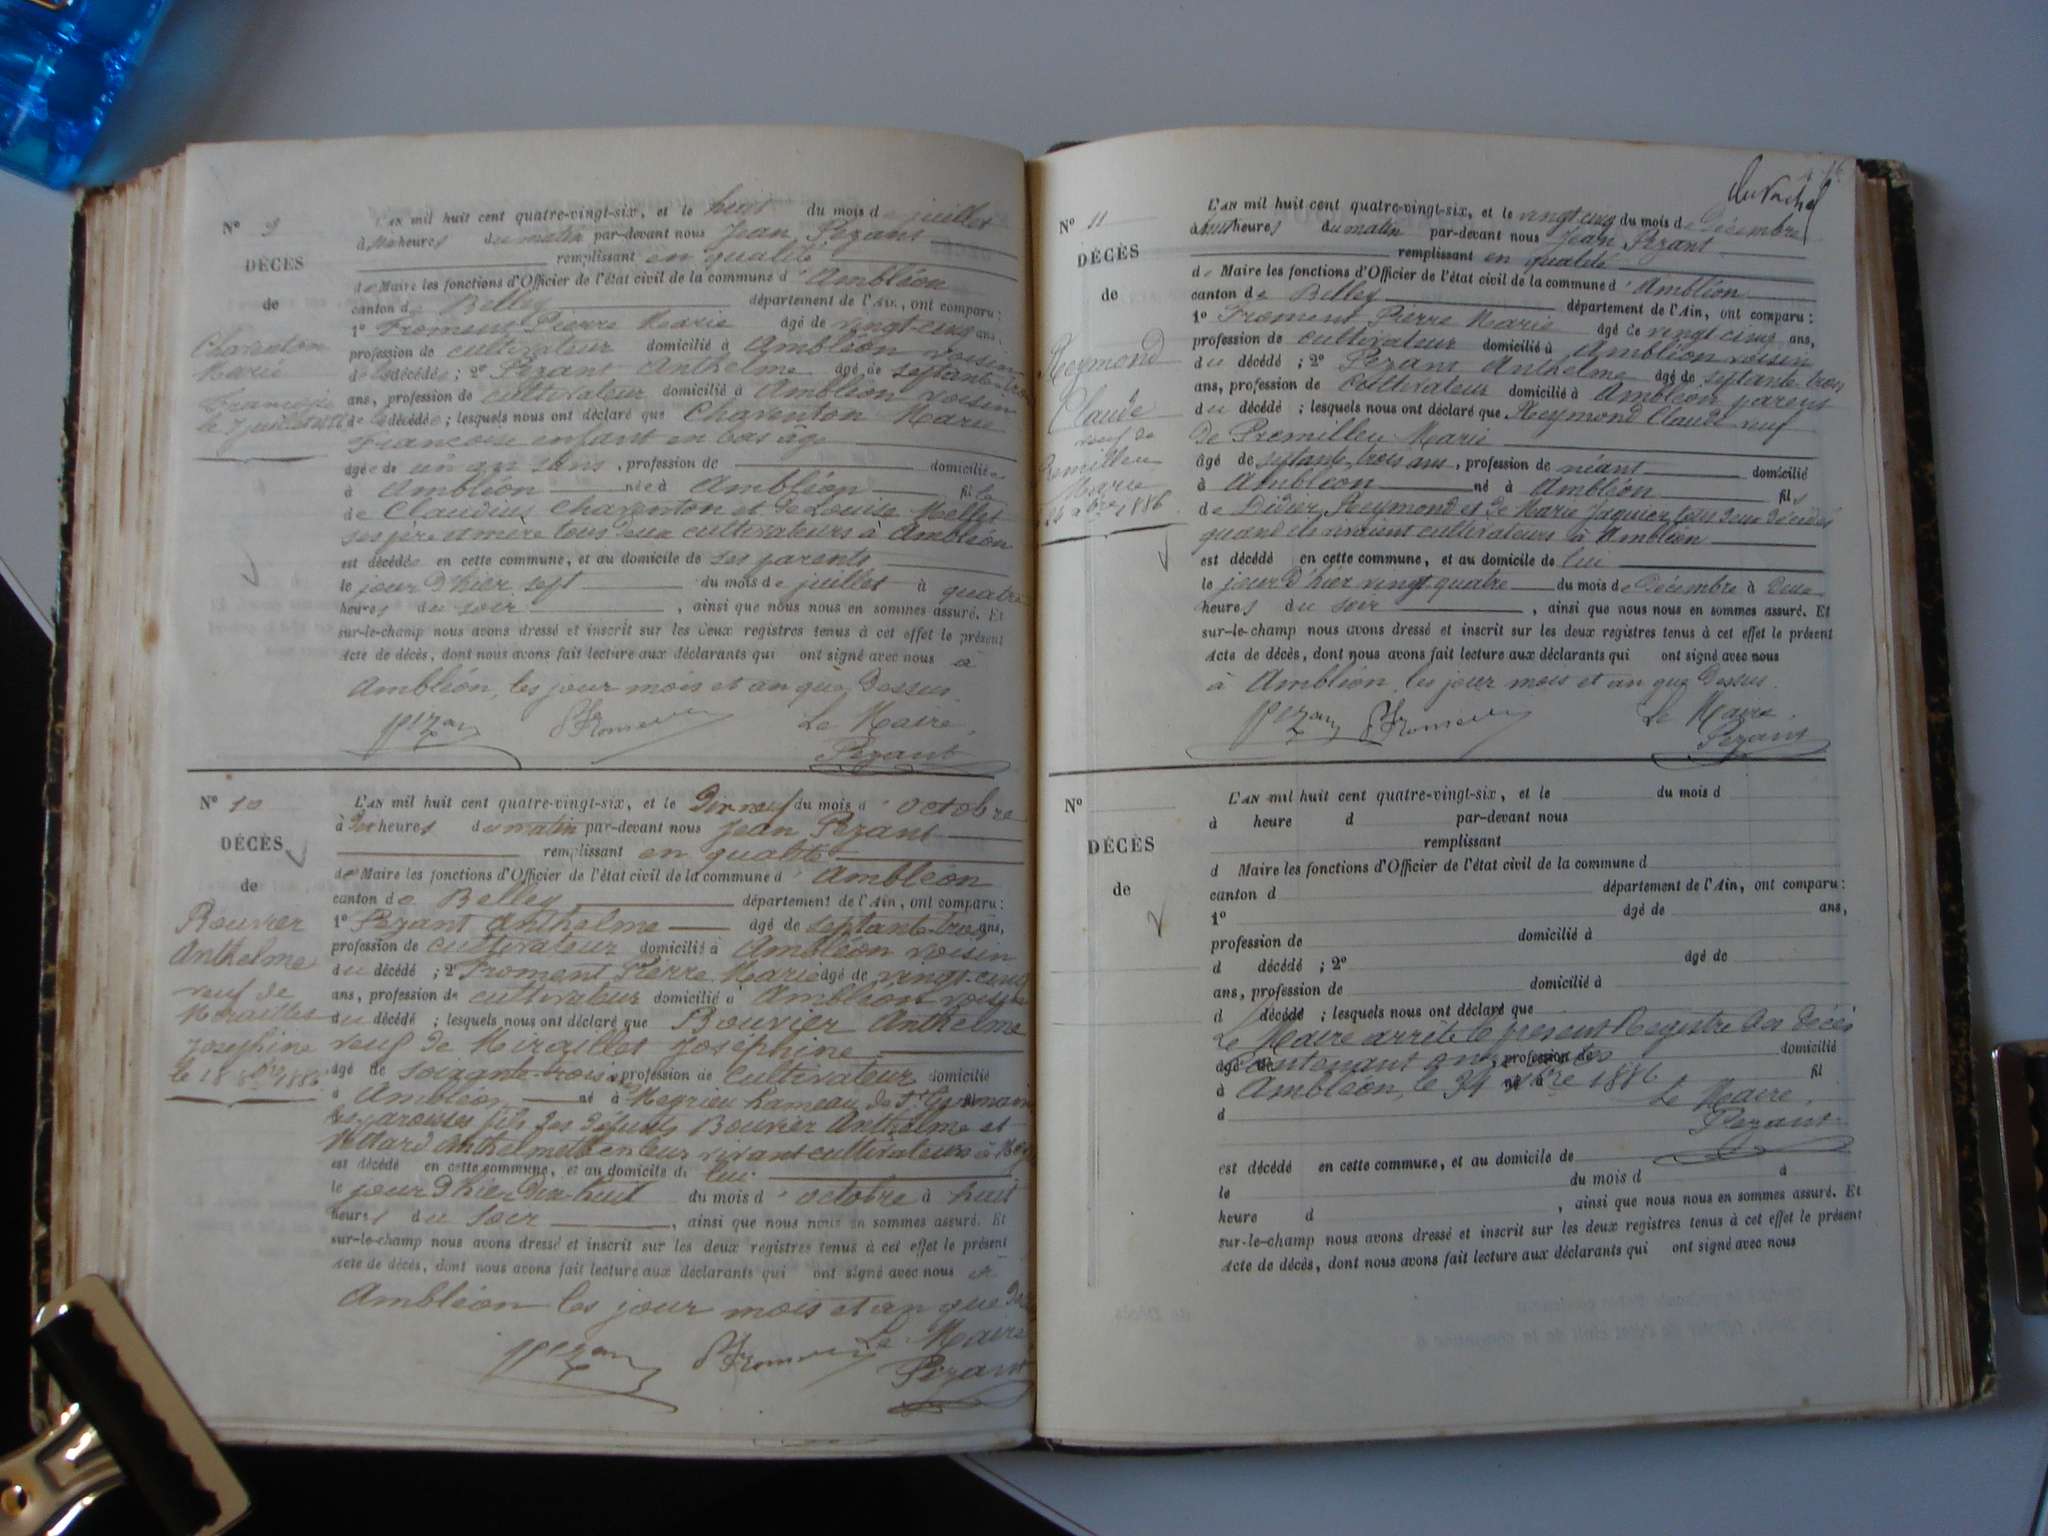 N° 9
DÉCÈS
de
Charenton
Marie
Françoise
le 7 juillet 1886
L'AN mil huit cent quatre-vingt-six, et le huit du mois de juillet
à heures du matin par-devant nous Jean Pezant
remplissant en qualité
de Maire les fonctions d'Officier de l'état civil de la commune d'Ambléon
canton de Belley département de l'Ain, ont comparu :
1° Froment Pierre Marie âgé de vingt-cinq ans,
profession de cultivateur domicilié à Ambléon voisin
de la décédée ; 2° Pezant Anthelme âgé de septante-trois
ans, profession de cultivateur domicilié à Ambléon voisin
de la décédée ; lesquels nous ont déclaré que Charenton Marie
Françoise enfant en bas âge
âgée de un an , profession de domiciliée
à Ambléon née à Ambléon fille
de Claudius Charenton et de Louise Mellet
ses père et mère tous deux cultivateurs à Ambléon
est décédée en cette commune, et au domicile de ses parents
le jour d'hier sept du mois de juillet à quatre
heures du soir , ainsi que nous nous en sommes assuré. Et
sur-le-champ nous avons dressé et inscrit sur les deux registres tenus à cet effet le présent
acte de décès, dont nous avons fait lecture aux déclarants qui ont signé avec nous à
Ambléon, les jour mois et an que dessus.
Pezan Froment Le Maire,
Pezant
N° 10
DÉCÈS
de
Bouvier
Anthelme
veuf de
Miraillet
Joséphine
le 18 8bre 1886
L'AN mil huit cent quatre-vingt-six, et le dix neuf du mois d'octobre
à dix heures du matin par-devant nous Jean Pezant
remplissant en qualité
de Maire les fonctions d'Officier de l'état civil de la commune d'Ambléon
canton de Belley département de l'Ain, ont comparu :
1° Pezant Anthelme âgé de septante-trois ans,
profession de cultivateur domicilié à Ambléon voisin
du décédé ; 2° Froment Pierre Marie âgé de vingt-cinq
ans, profession de cultivateur domicilié à Ambléon voisin
du décédé ; lesquels nous ont déclaré que Bouvier Anthelme
veuf de Miraillet Joséphine
âgé de soixante-trois ans profession de cultivateur domicilié
à Ambléon né à Meyrieu hameau de St Germain
les paroisses fils des défunts Bouvier Anthelme et
Anthelmette en leur vivant cultivateurs à
est décédé en cette commune, et au domicile de lui
le jour d'hier dix-huit du mois d'octobre à huit
heures du soir , ainsi que nous nous en sommes assuré. Et
sur-le-champ nous avons dressé et inscrit sur les deux registres tenus à cet effet le présent
acte de décès, dont nous avons fait lecture aux déclarants qui ont signé avec nous à
Ambléon les jour mois et an que dessus
Le Maire
Pezan Froment Pezant
N° 11
DÉCÈS
de
Reymond
Claude
veuf de
Premillieu
Marie
24 Xbre 1886
L'AN mil huit cent quatre-vingt-six, et le vingt cinq du mois de Décembre
à huit heures du matin par-devant nous Jean Pezant
remplissant en qualité
de Maire les fonctions d'Officier de l'état civil de la commune d'Ambléon
canton de Belley département de l'Ain, ont comparu :
1° Froment Pierre Marie âgé de vingt cinq ans,
profession de cultivateur domicilié à Ambléon voisin
du décédé ; 2° Pezant Anthelme âgé de septante-trois
ans, profession de Cultivateur domicilié à Ambléon parent
du décédé ; lesquels nous ont déclaré que Reymond Claude veuf
de Premillieu Marie
âgé de septante trois ans, profession de néant domicilié
à Ambléon né à Ambléon fils
de Didier Reymond et de Marie Jaquier tous deux décédés
quand ils vivaient cultivateurs à Ambléon
est décédé en cette commune, et au domicile de lui
le jour d'hier vingt quatre du mois de Décembre à deux
heures du soir , ainsi que nous nous en sommes assuré. Et
sur-le-champ nous avons dressé et inscrit sur les deux registres tenus à cet effet le présent
acte de décès, dont nous avons fait lecture aux déclarants qui ont signé avec nous
à Ambléon, les jour mois et an que dessus.
Pezan Froment Le Maire,
Pezant
N°
DÉCÈS
de
L'AN mil huit cent quatre-vingt-six, et le du mois d
à heure d par-devant nous
remplissant
d Maire les fonctions d'Officier de l'état civil de la commune d
canton d département de l'Ain, ont comparu :
1° âgé de ans,
profession de domicilié à
d décédé ; 2° âgé de
ans, profession de domicilié à
d décédé ; lesquels nous ont déclaré que
Le Maire arrête le présent Registre des décès
âgé de , profession de domicilié
Contenant onze actes
à né à fil
Ambléon, le 31 Xbre 1886
Le Maire,
d
Pezant
est décédé en cette commune, et au domicile de
le du mois d à
heure d , ainsi que nous nous en sommes assuré. Et
sur-le-champ nous avons dressé et inscrit sur les deux registres tenus à cet effet le présent
acte de décès, dont nous avons fait lecture aux déclarants qui ont signé avec nous